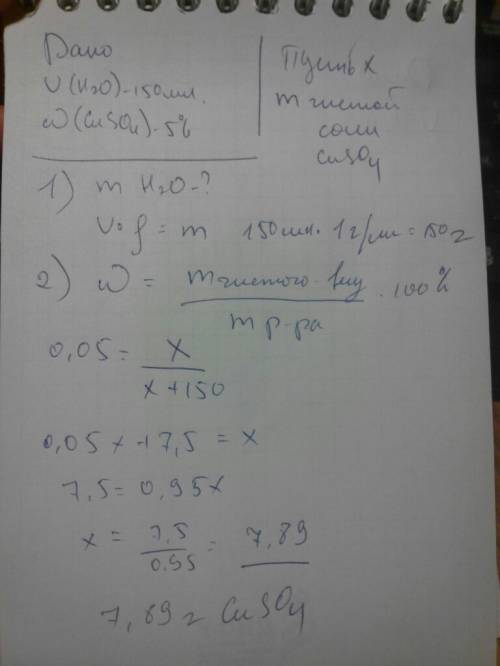 Дано
V(H₂O) - 150 мл.
ω(CuSO₄) - 5%
Пусть x
m чистой
соли
CuSO₄
1) m H₂O - ?
V · ρ = m 150 мл · 1 г/мл = 150 г
2) ω = m чистого в-ву / m р-ра · 100%
0,05 = x / x + 150
0,05x + 7,5 = x
7,5 = 0,95x
x = 7,5 / 0,95 = 7,89
7,89 г CuSO₄